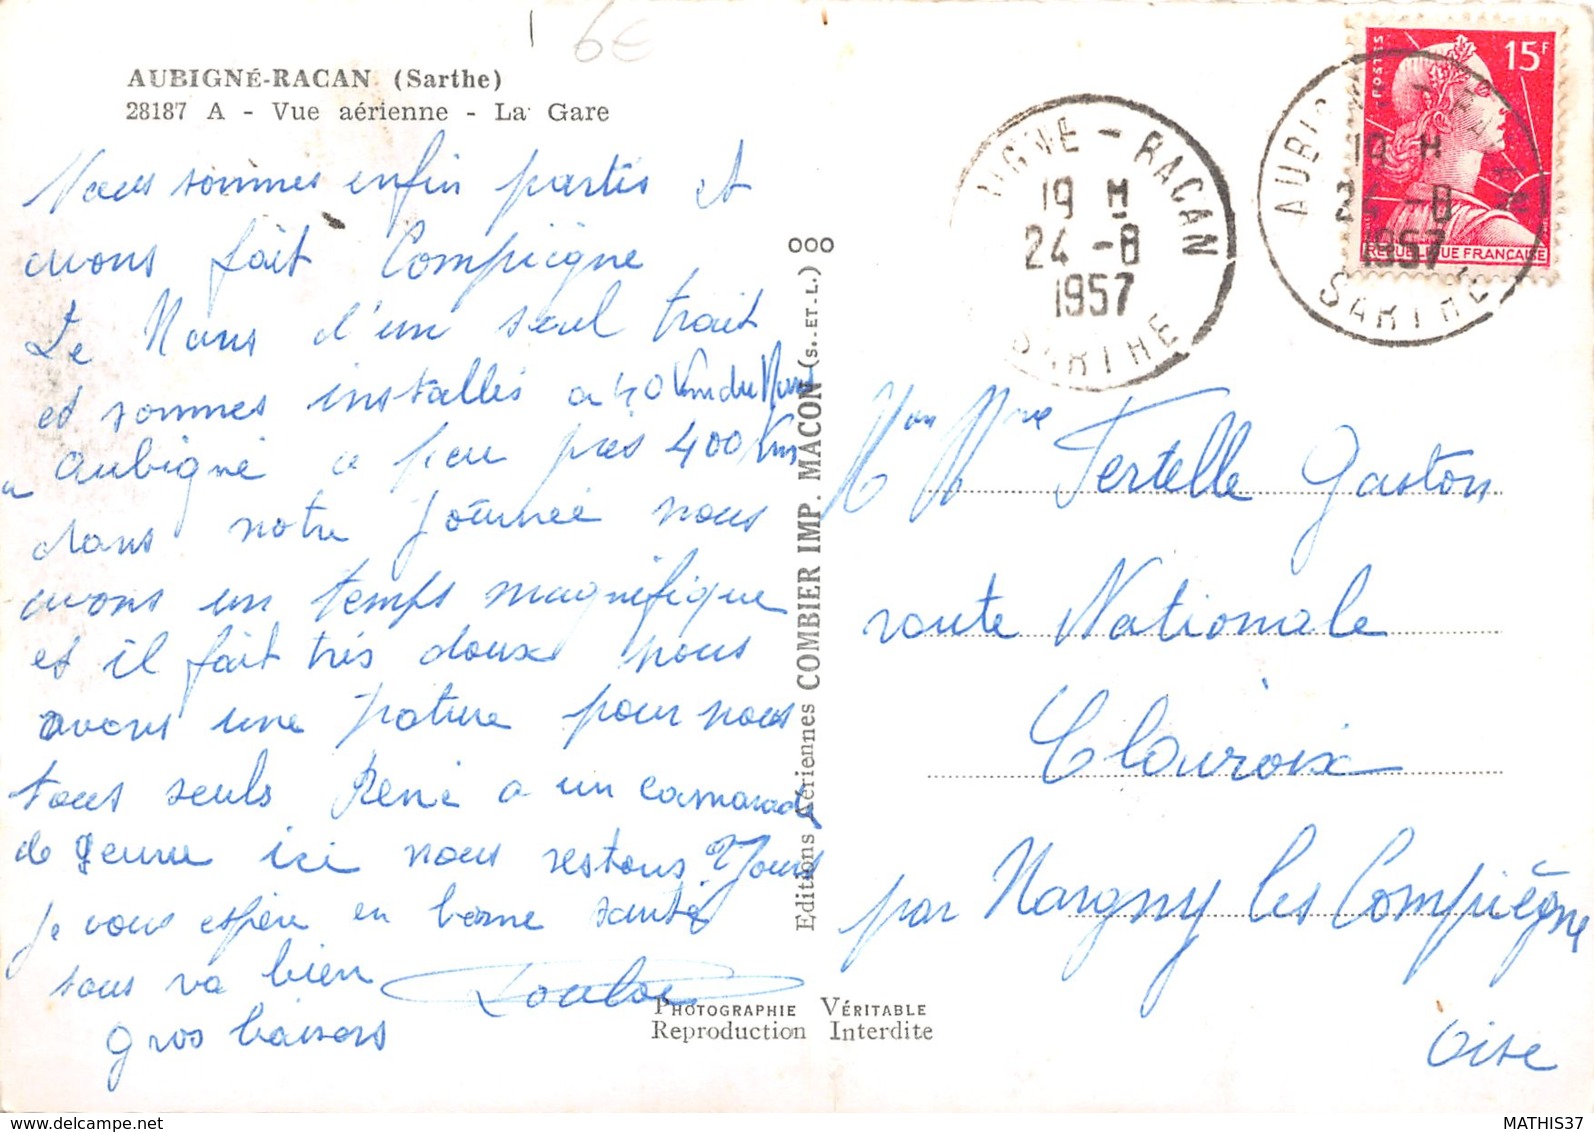 6€
AUBIGNÉ-RACAN (Sarthe)
28187 A - Vue aérienne - La Gare
Nous sommes enfin partis et
avons fait Compiègne
Le Mans d'un seul trait
et sommes installés a 40 Km du Mans
a Aubigné a peu près 400 Km
dans notre journée nous
avons un temps magnifique
et il fait très doux nous
avons une pature pour nous
tous seuls René a un camarade
de jeune ici nous restons 2 Jours
je vous espère en bonne santé
tous va bien
Gros baisers
Editions Aériennes COMBIER IMP. MACON (S.-ET-L.) OOO
PHOTOGRAPHIE VÉRITABLE
Reproduction Interdite
UIGNE - RACAN
19 H
24 - 8
1957
SARTHE
POSTES
15F
REPUBLIQUE FRANÇAISE
AUBIGNE - RACAN
19 H
24 - 8
1957
SARTHE
Mon Mme Tertelle Gaston
route Nationale
Clairoix
par Margny les Compiègne
Oise
MATHIS37